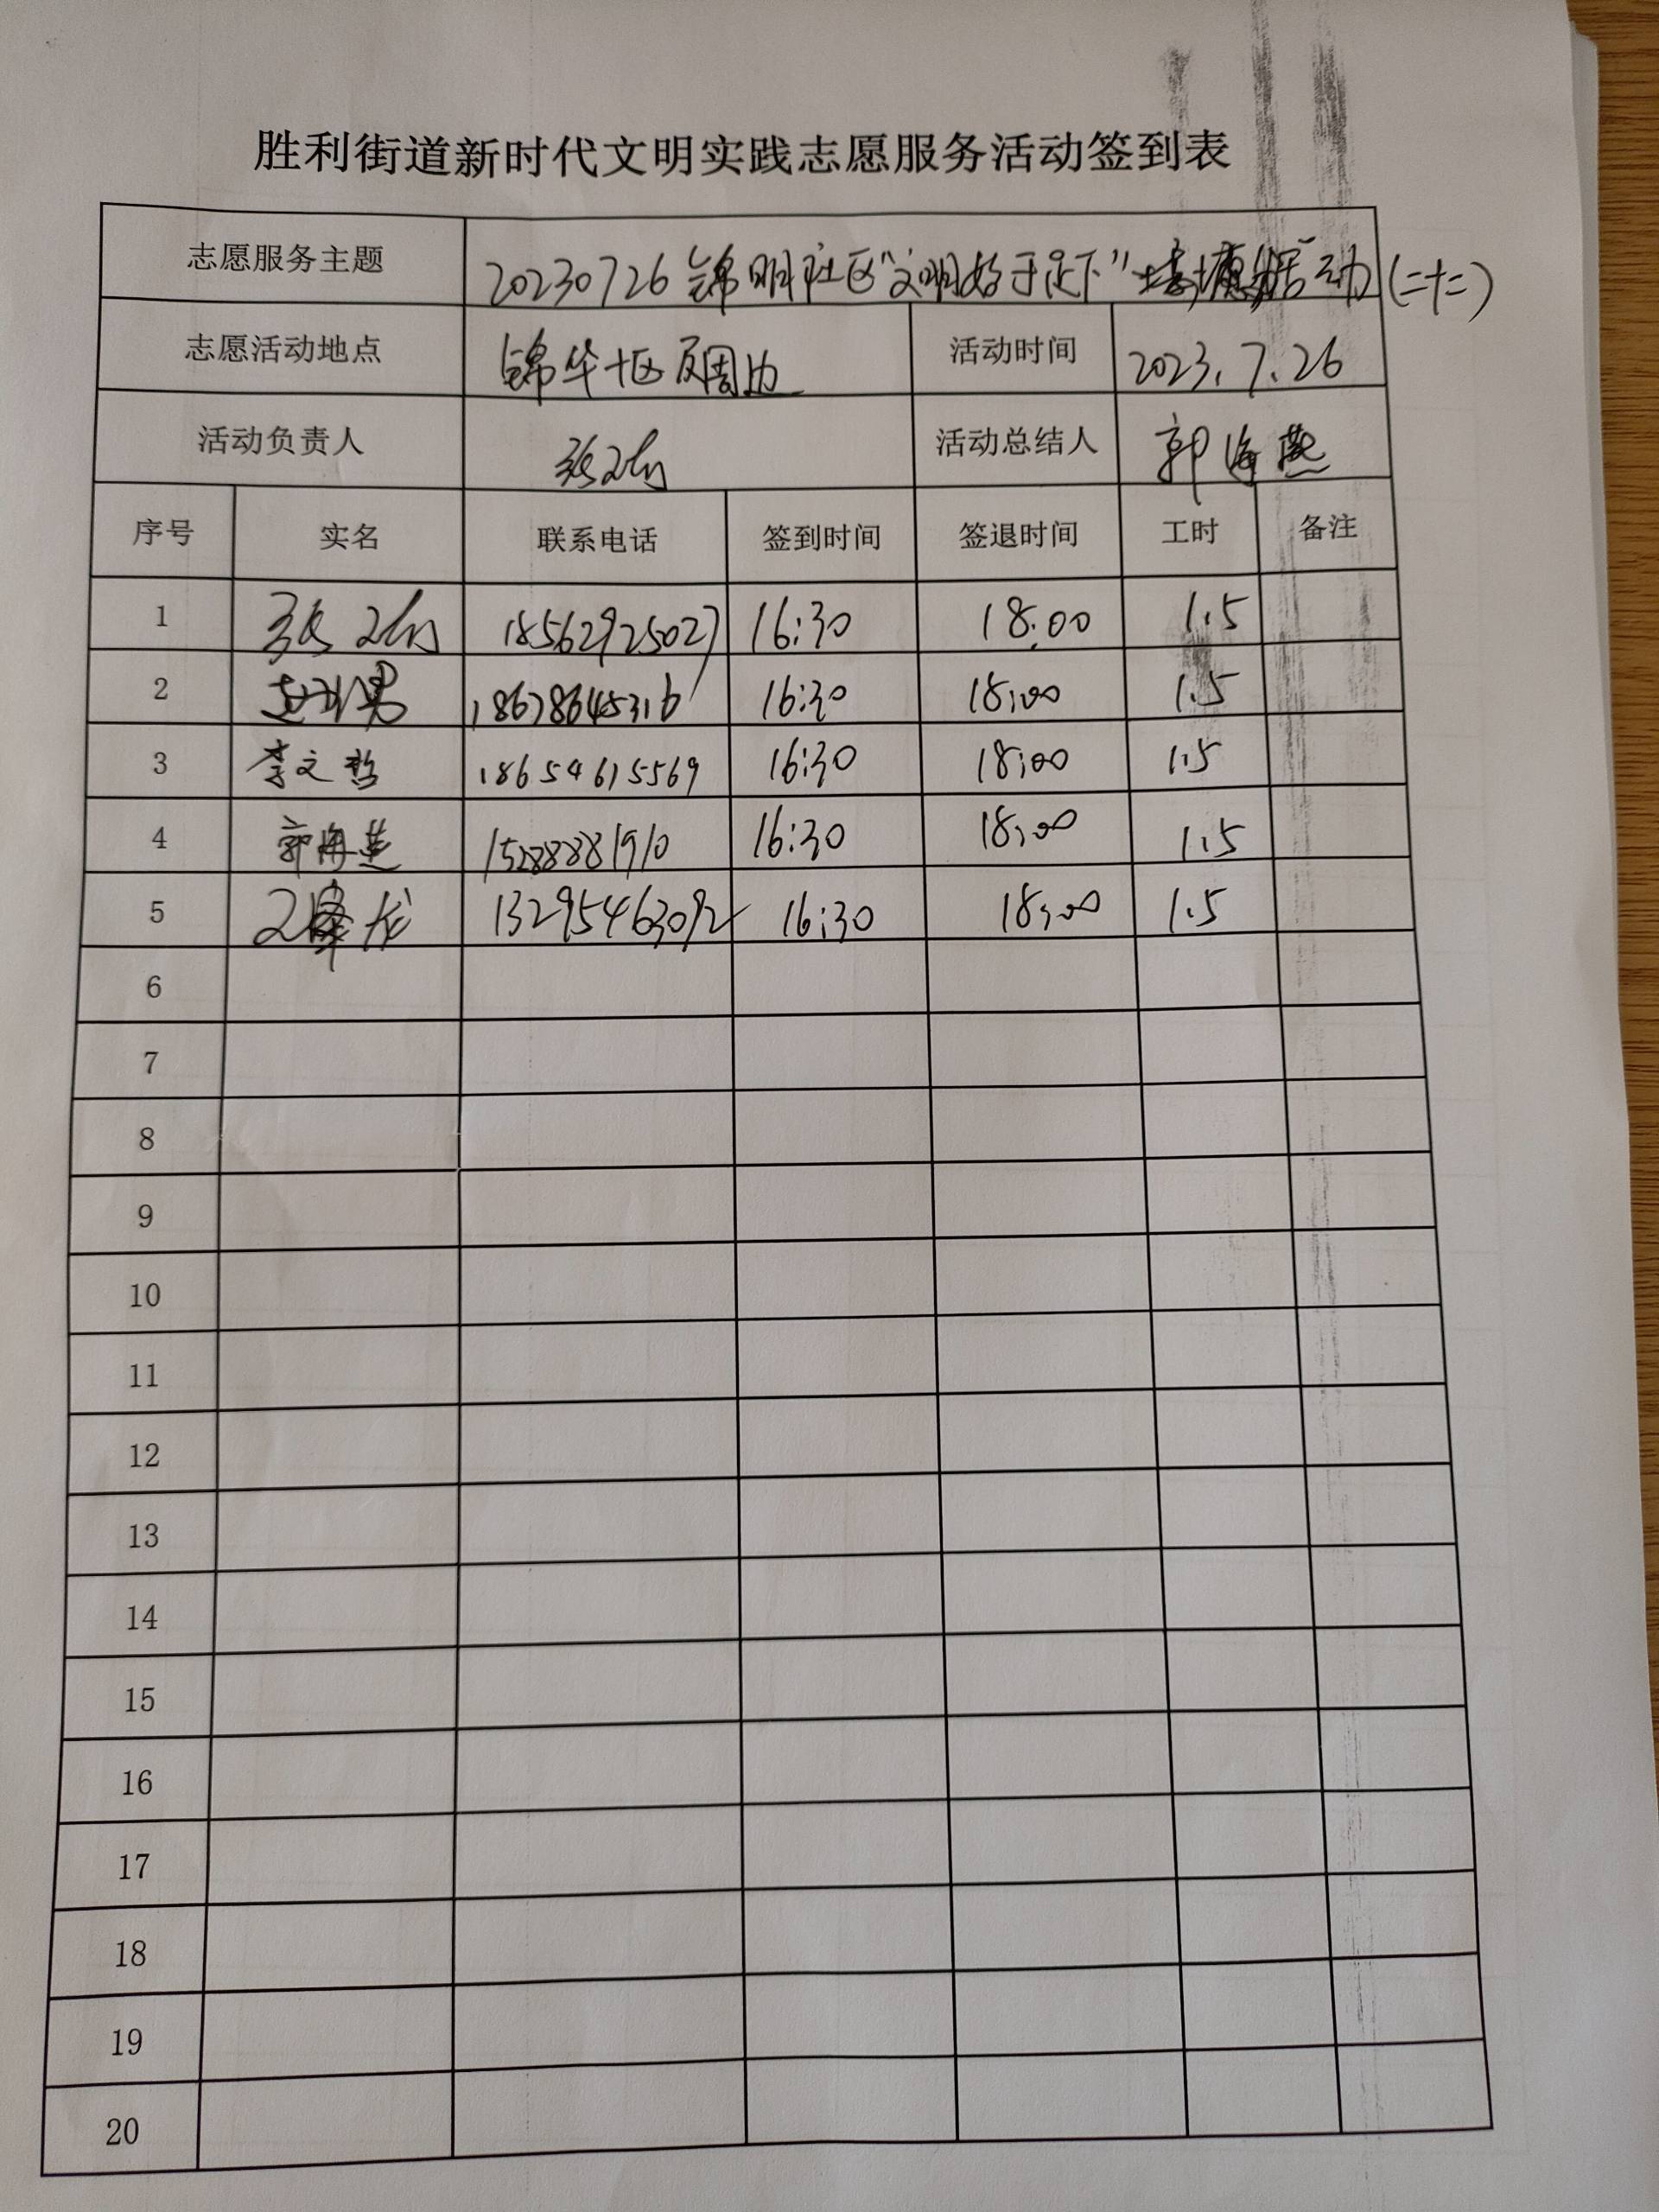 胜利街道新时代文明实践志愿服务活动签到表
志愿服务主题 20230726锦明社区“文明始于足下”志愿活动(二十二)
志愿活动地点 锦华十区及周边 活动时间 2023.7.26
活动负责人 活动总结人 郭海燕
序号 实名 联系电话 签到时间 签退时间 工时 备注
1 18562925027 16:30 18:00 1.5
2 18678645316 16:30 18:00 1.5
3 李文哲 18654615569 16:30 18:00 1.5
4 郭海燕 15288881910 16:30 18:00 1.5
5 13295463092 16:30 18:00 1.5
6
7
8
9
10
11
12
13
14
15
16
17
18
19
20